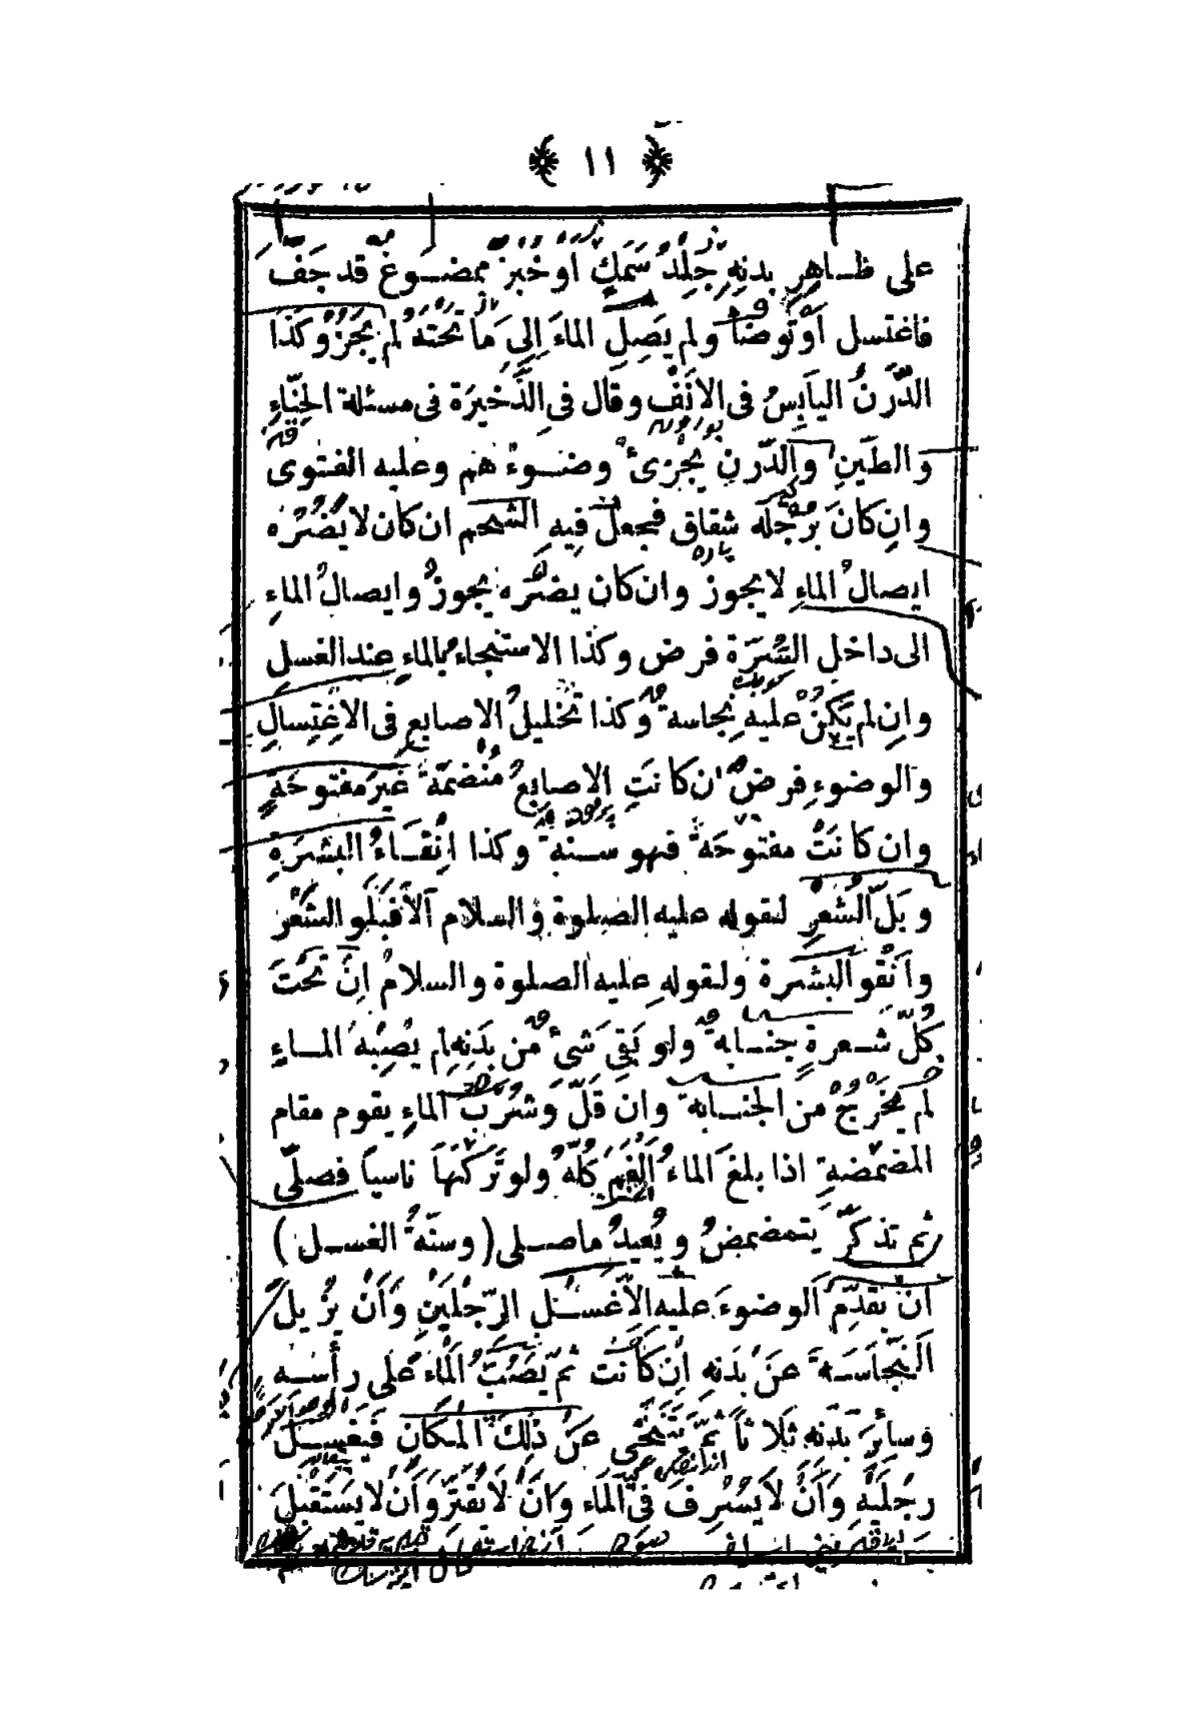 ﴿ ١١ ﴾
على ظاهر بدنه جلد سمك او خبز ممضوغ قد جف
فاغتسل او توضأ ولم يصل الماء الى ما تحته لم يجز وكذا
الدرن اليابس فى الانف وقال فى الذخيرة فى مسئلة الحناء
والطين والدرن يجزئ وضوءهم وعليه الفتوى
وان كان برجله شقاق فجعل فيه الشحم ان كان لا يضره
ايصال الماء لا يجوز وان كان يضره يجوز وايصال الماء
الى داخل السرة فرض وكذا الاستنجاء بالماء عند الغسل
وان لم يكن عليه نجاسة وكذا تخليل الاصابع فى الاغتسال
والوضوء فرض ان كانت الاصابع منضمة غير مفتوحة
وان كانت مفتوحة فهو سنة وكذا انقاء البشرة
وبل الشعر لقوله عليه الصلوة والسلام الا فبلو الشعر
وانقو البشرة ولقوله عليه الصلوة والسلام ان تحت
كل شعرة جنابة ولو بقى شئ من بدنه لم يصبه الماء
لم يخرج من الجنابة وان قل وشرب الماء يقوم مقام
المضمضة اذا بلغ الماء الفم كله ولو تركها ناسيا فصلى
ثم تذكر يتمضمض ويعيد ما صلى (وسنة الغسل)
ان يقدم الوضوء عليه الا غسل الرجلين وان يزيل
النجاسة عن بدنه ان كانت ثم يصب الماء على رأسه
وسائر بدنه ثلاثا ثم يتنحى عن ذلك المكان فيغسل
رجليه وان لا يسرف فى الماء وان لا يقتر وان لا يستقبل